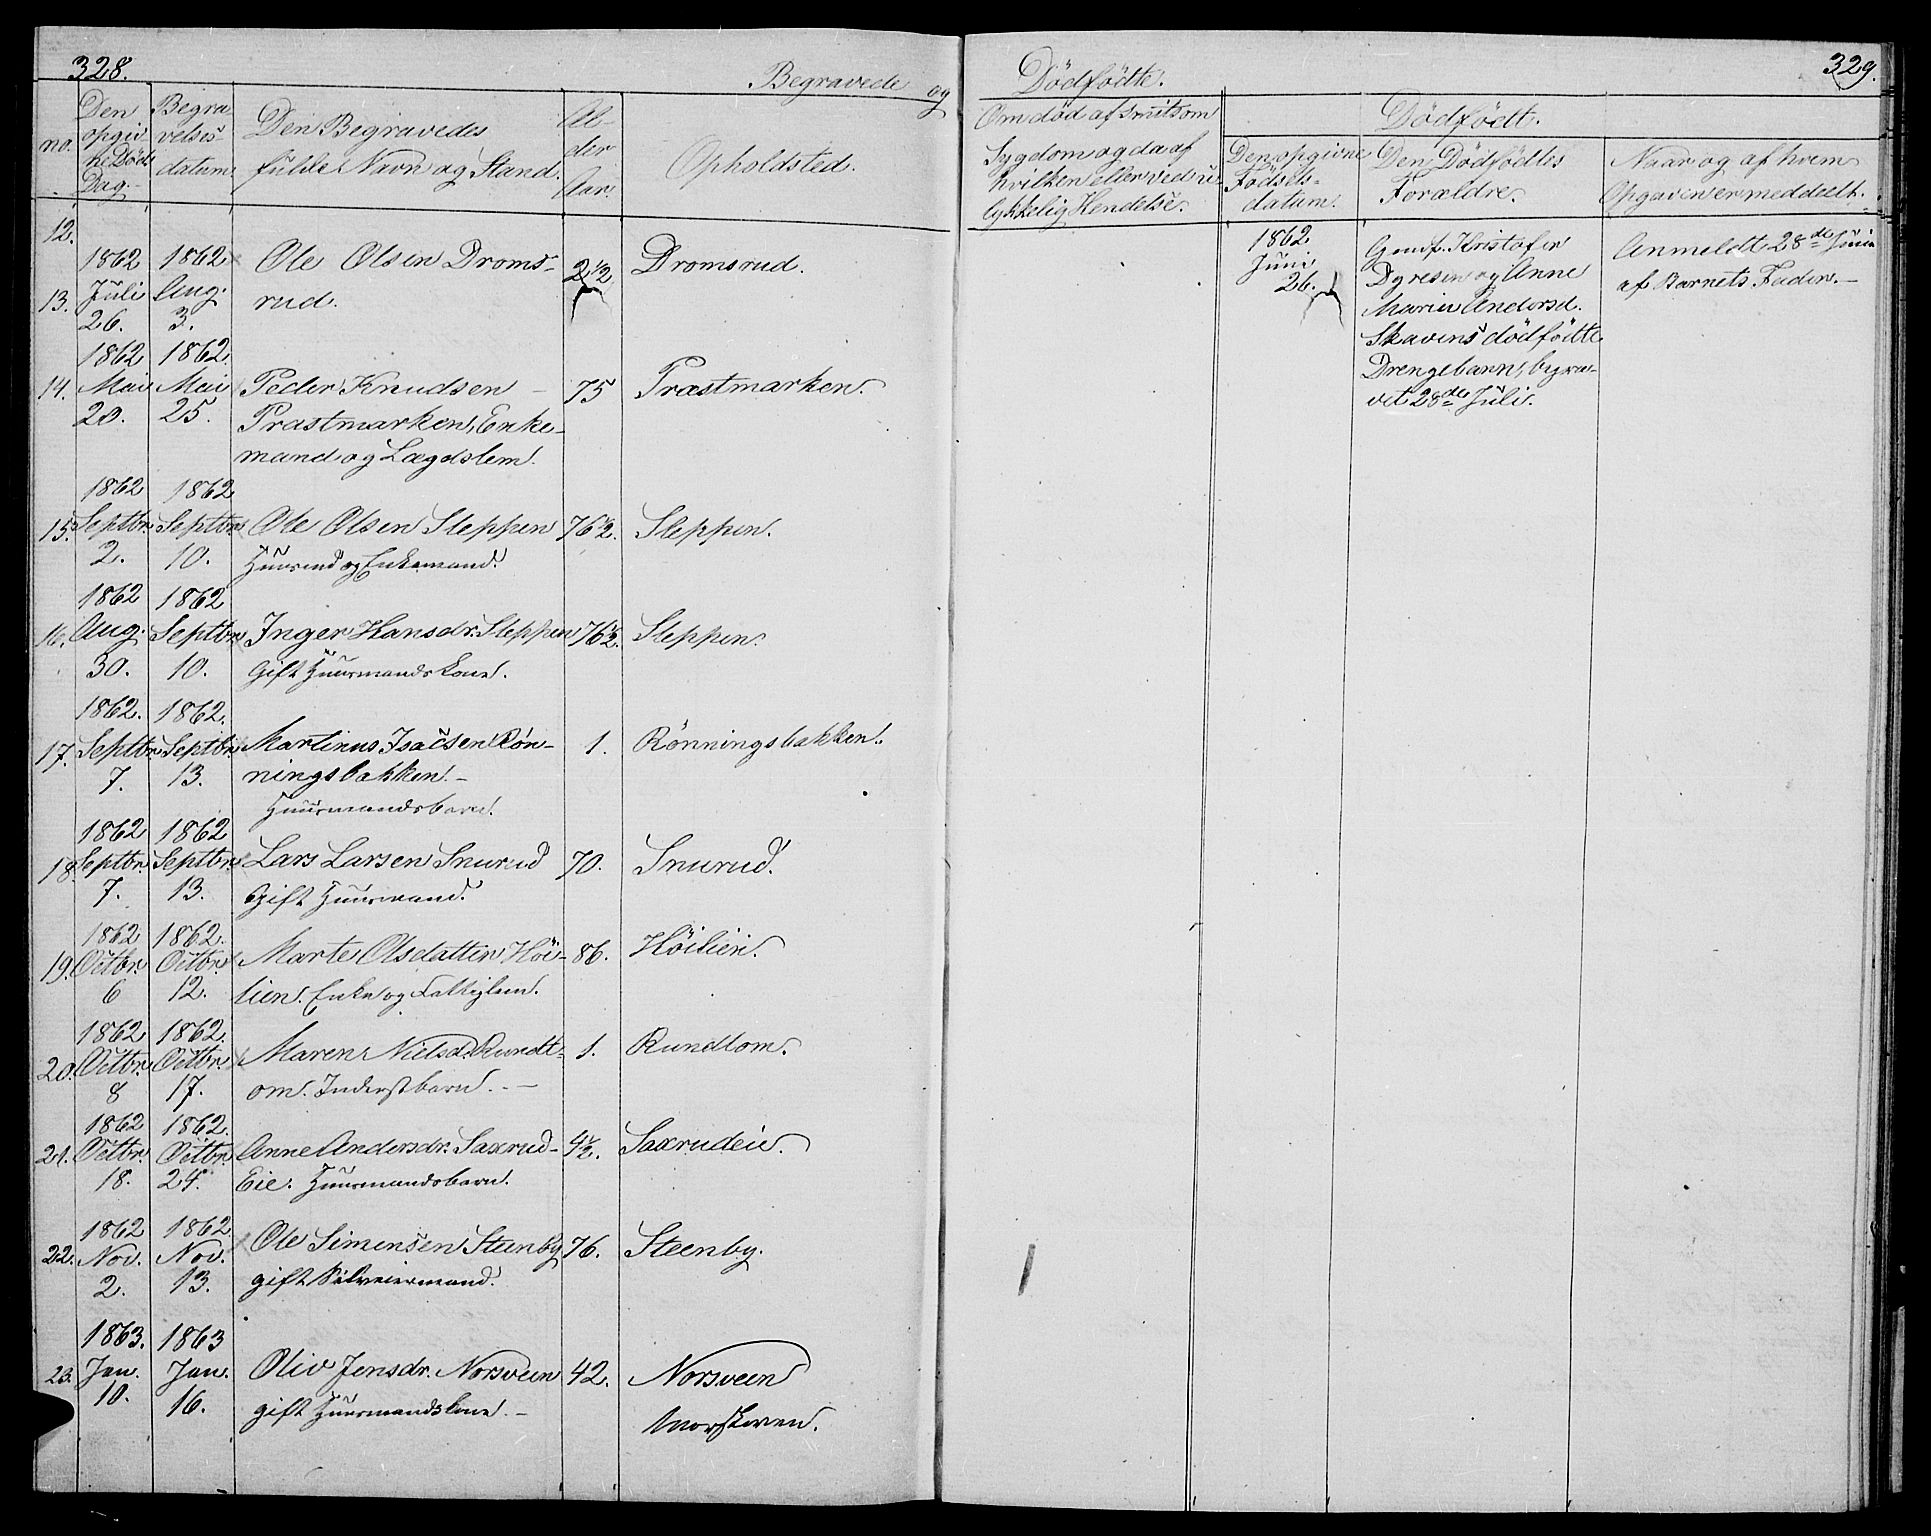 328.
Begravede og
Den opgivne Døds Dag.
no.
Begravelses-datum
Den Begravedes fulde Navn og Stand.
Alder Aar.
Opholdsted.
12.
1862 1862 Ole Olsen Droms- 2 1/2 Dromsrud.
13. Juli Aug. rud.
26. 3.
1862 1862
14. Mai Mai Peder Knudsen 75 Præstmarken.
20. 25. Præstmarken, Enke-
mand og Lægdslem.
1862 1862
15. Septbr. Septbr. Ole Olsen Steppen 76 1/2. Steppen.
2. 10. Huusmd og Enkemand.
1862 1862
16. Aug. Septbr. Inger Hansdr. Steppen 76 1/2. Steppen.
30. 10. Gift Huusmandskone.
1862. 1862.
17. Septbr. Septbr. Martinus Isacsen Røn- 1. Rönningsbakken.
7. 13. ningsbakken. –
Huusmandsbarn.
1862 1862
18. Septbr. Septbr. Lars Larsen Snurud 70. Snurud.
7. 13. Gift Huusmand.
1862 1862.
19. Octbr. Octbr. Marte Olsdatter Höi- 86. Höilien.
6 12. lien. Enke og Fattiglem.
1862 1862.
20. Octbr. Octbr. Maren Nielsd. Rundt- 1. Rundtom.
8 17. om. Inderstbarn. –
1862 1862.
21. Octbr. Octbr. Anne Andersdr. Saxrud- 4 1/2. Saxrudeie.
18. 24. Eie. Huusmandsbarn.
1862 1862
22. Nov. Nov. Ole Simensen Steenby 76. Steenby.
2. 13. gift Selveiermand.
1863. 1863
23. Jan. Jan. Oliv Jensdr. Norsveen 42. Norsveen
10. 16. gift Huusmandskone. –
329.
Dödfödte.
Om död af smitsom
Sygdom og da af
hvilken eller ved u-
lykkelig Hendelse.
Dödfödt.
Den opgivne
Födsels-
datum.
Den Dödfödtes
Forældre.
Naar og af hvem
Opgaven er meddeelt.
1862
Juni
26.
Gmdf. Kristofer
Dyresen og Anne
Marie Andersd.
Skavens dödfödte
Drengebarn, begra-
vet 28de Juli.
Anmeldt 28de Juni
af Barnets Fader. –